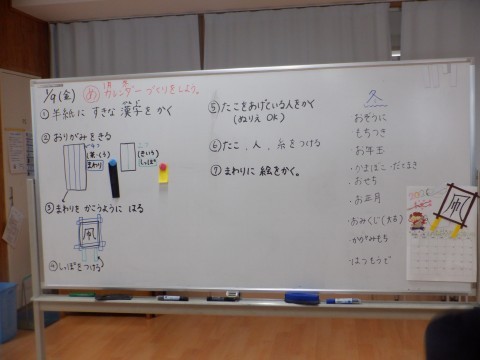 1/9(金) め 1月 カレンダーづくりをしよう。
① 半紙に すきな漢字をかく
② おりがみをきる
まわり
(きいろ)
しっぽ
③ まわりを かこうように はる
凧
④ しっぽをつける
⑤ たこをあげている人をかく
(ぬりえ OK)
⑥ たこ、人、糸をつける
⑦ まわりに 絵をかく。
冬
おぞうに
もちつき
お年玉
・かまぼこ・だてまき
・おせち
・お正月
・おみくじ(大吉)
・かがみもち
・はつもうで
凧